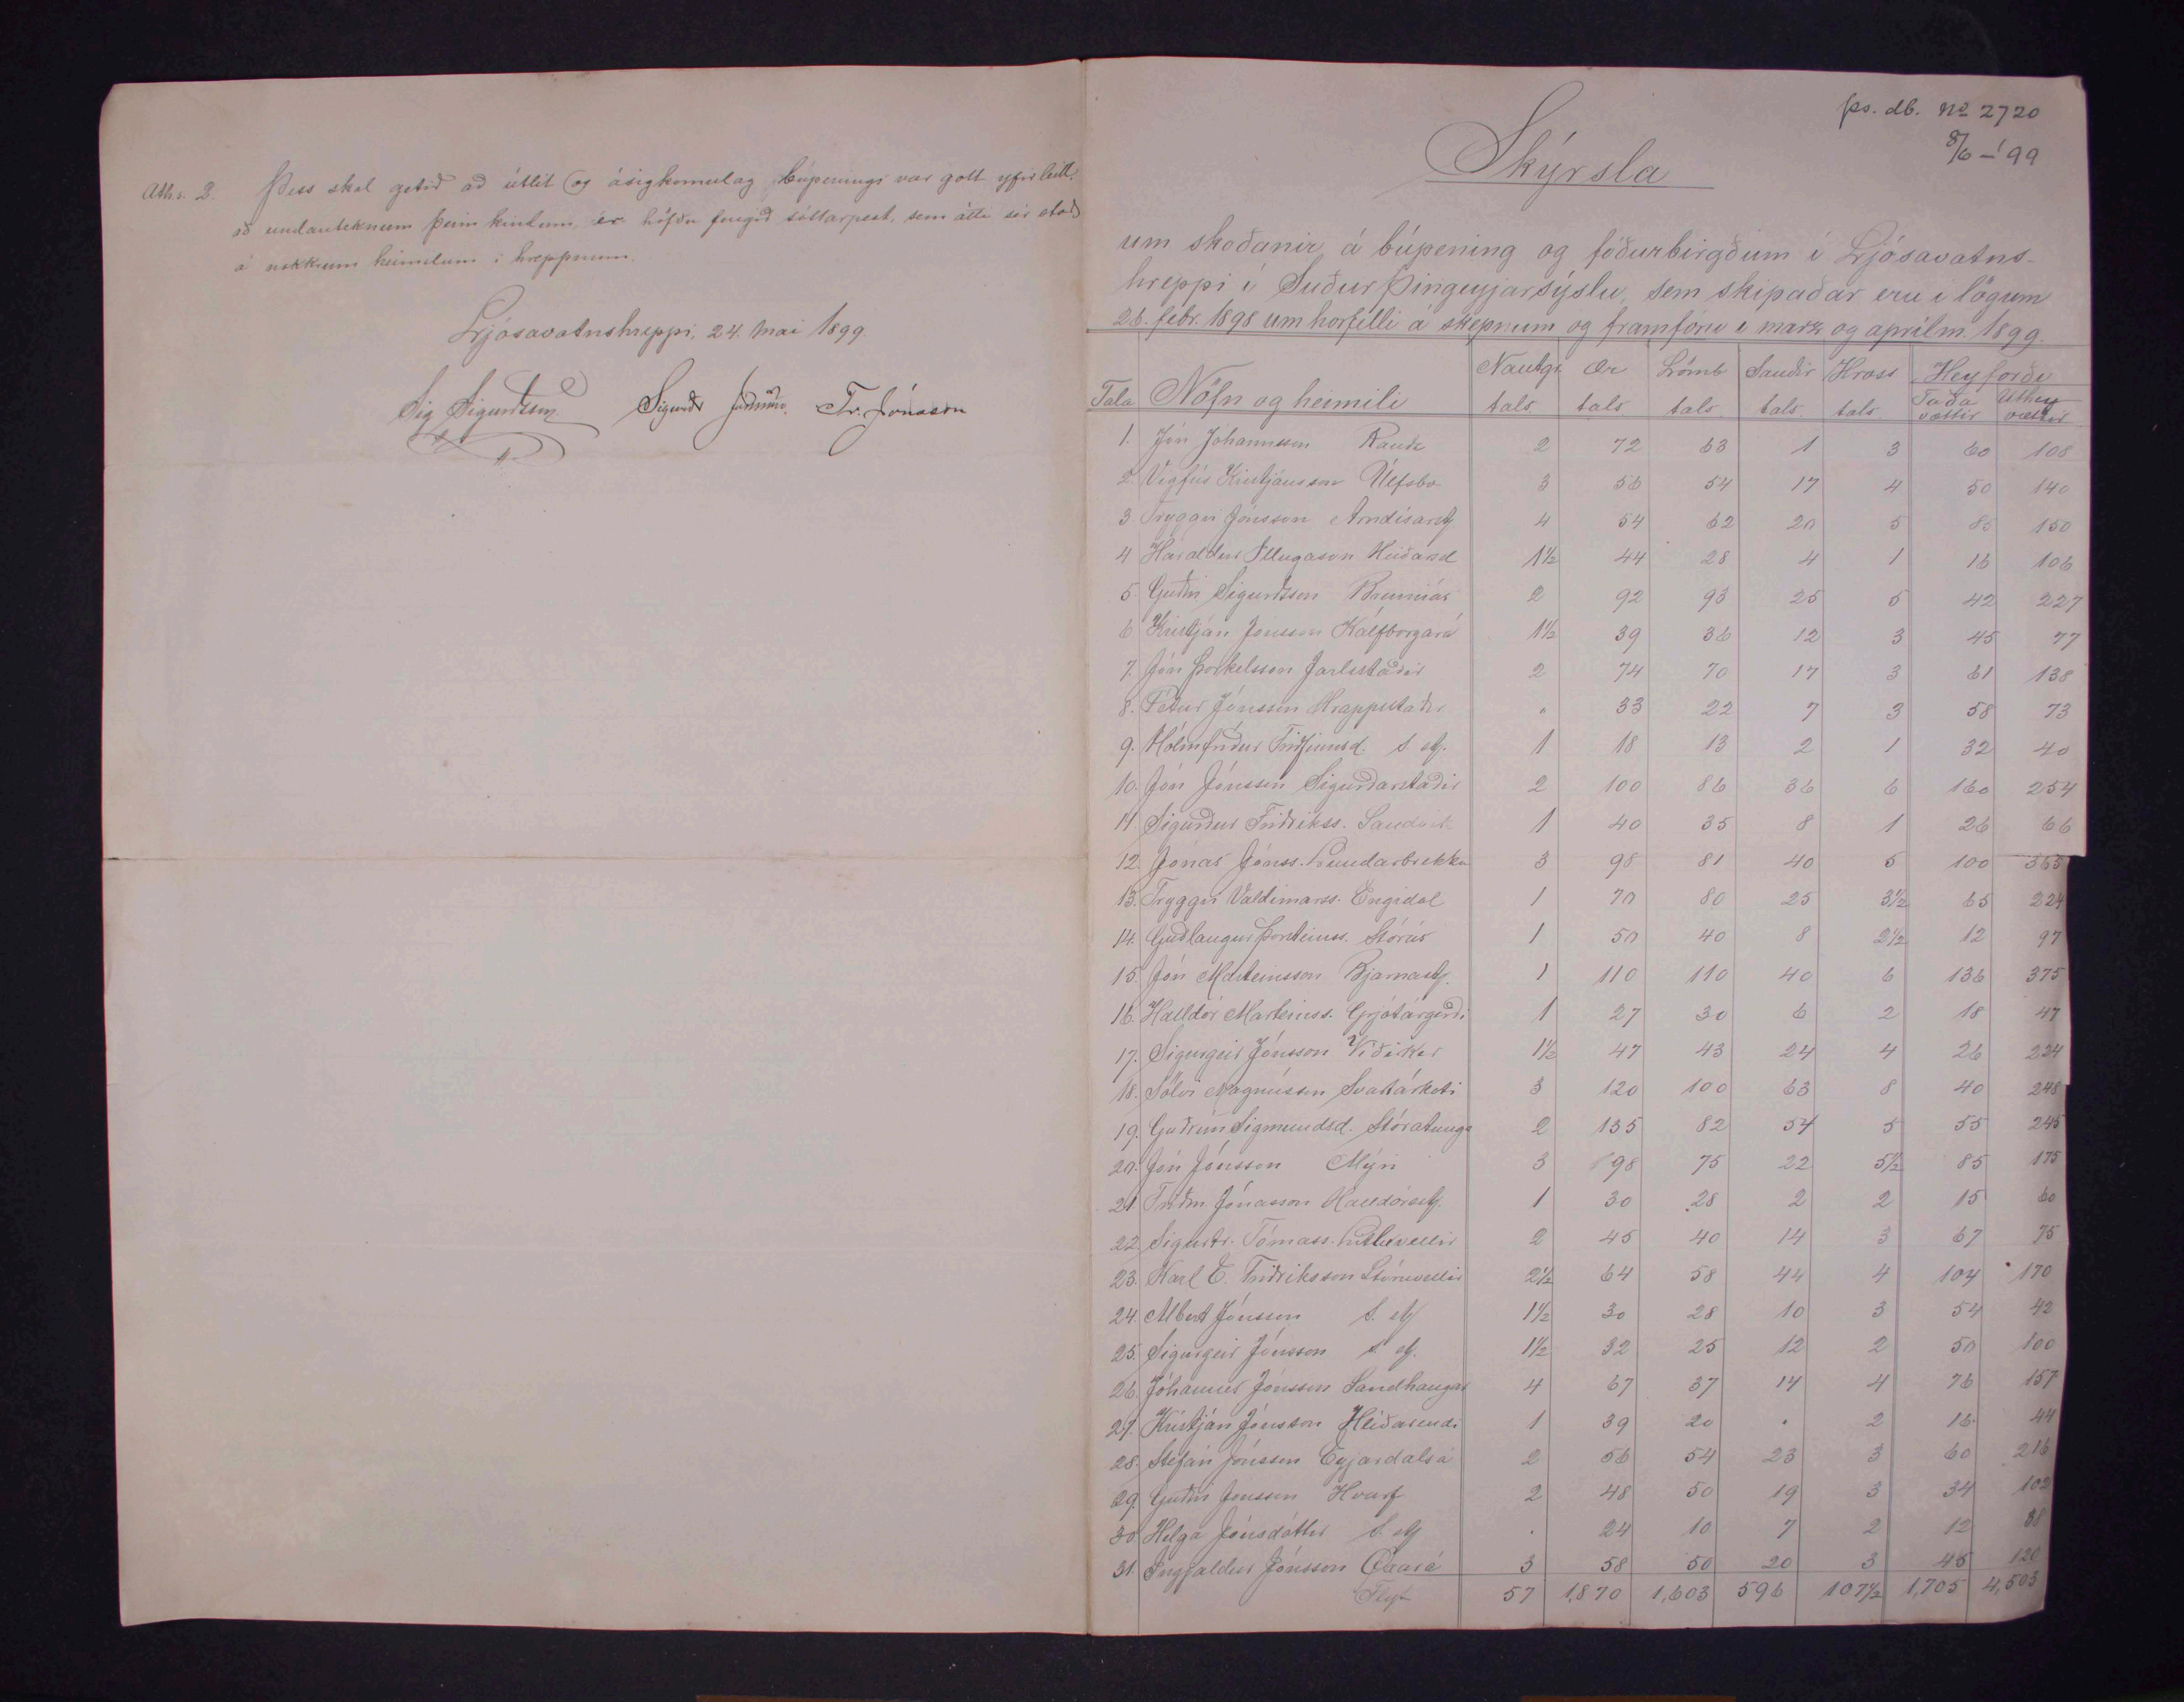 Aths. 2. Þess skal getið að útlit og ásigkomulag búpenings var gott yfirleitt.
að undanteknum þeim kindum, er höfðu fengið sóttarpest, sem átti sér stað
á nokkrum heimilum í hreppnum.
Ljósavatnshreppi, 24. Mai 1899.
Sig Sigurdsson Sigurdr Tr. Jónasson
ps. db. No 2720
8/6 – '99
Skýrsla
um skoðanir á búpening og fóðurbirgðum í Ljósavatns-
hreppi í Suður Þingeyjarsýslu, sem skipaðar eru í lögum
26. febr. 1898 um horfelli á skepnum og framfóru í marz og aprílm. 1899.
Tala Nöfn og heimili Nautgr. tals Ær tals Lömb tals Sauðir tals. Hross tals Heyforði Taða vættir Úthey vættir
1. Jón Jóhannsson Rauðá 2 72 63 1 3 60 108
2. Vigfús Kristjánsson Úlfsbæ 3 56 54 17 4 50 140
3 Tryggvi Jónsson Arndísarstj 4 54 62 20 5 86 150
4 Haraldur Illugason Heiðarsel 1½ 44 28 4 1 16 106
5 Guðni Sigurðsson Brunnás 2 92 93 25 5 42 227
6 Kristján Jónsson Kálfborgará 1½ 39 36 12 3 45 77
7. Jón Þorkelsson Jarlstaðir 2 74 70 17 3 61 138
8. Pétur Jónsson Hrappstaðir " 33 22 7 3 58 73
9. Hólmfríður Friðfinnsd. s. stj. 1 18 13 2 1 32 40
10. Jón Jónsson Sigurðarstaðir 2 100 86 36 6 160 254
11 Sigurður Friðrikss. 1 40 35 8 1 26 66
12. Jónas Jónss. Lundarbrekku 3 98 81 40 5 100 365
13. Tryggvi Valdimarss. Engidal 1 70 80 25 3½ 65 224
14. Guðlaugur Þorsteinss. Stórás 1 50 40 8 2½ 12 97
15. Jón Marteinsson Bjarnastj. 1 110 110 40 6 136 375
16. Halldór Marteinss. Grjótárgerði 1 27 30 6 2 18 47
17. Sigurgeir Jónsson Víðiker 1½ 47 43 24 4 26 224
18. Sölvi Magnússon Svartárkoti 3 120 100 63 8 40 248
19. Guðrún Sigmundsd. Stóratunga 2 135 82 54 5 55 245
20. Jón Jónsson Mýri 3 98 75 22 5½ 85 175
21. Friðm. Jónasson Halldórsstj. 1 30 28 2 2 15 60
22. Sigurtr. Tómass. Litluvellir 2 45 40 14 3 67 75
23. Karl E. Friðriksson Stóruvellir 2½ 64 58 44 4 104 170
24. Albert Jónsson S. stj 1½ 30 28 10 3 54 42
25. Sigurgeir Jónsson s. stj. 1½ 32 25 12 2 50 100
26. Jóhannes Jónsson Sandhaugar 4 67 37 14 4 76 157
27. Kristján Jónsson Heiðarendi 1 39 20 " 2 16 44
28. Stefán Jónsson Eyjardalsá 2 56 54 23 3 60 216
29. Guðni Jónsson Hvarf 2 48 50 19 3 34 102
30. Helga Jónsdóttir S. stj " 24 10 7 2 12 38
31. Ingjaldur Jónsson Öxará 3 58 50 20 3 45 120
Flyt 57 1,870 1,603 596 107½ 1,705 4,503